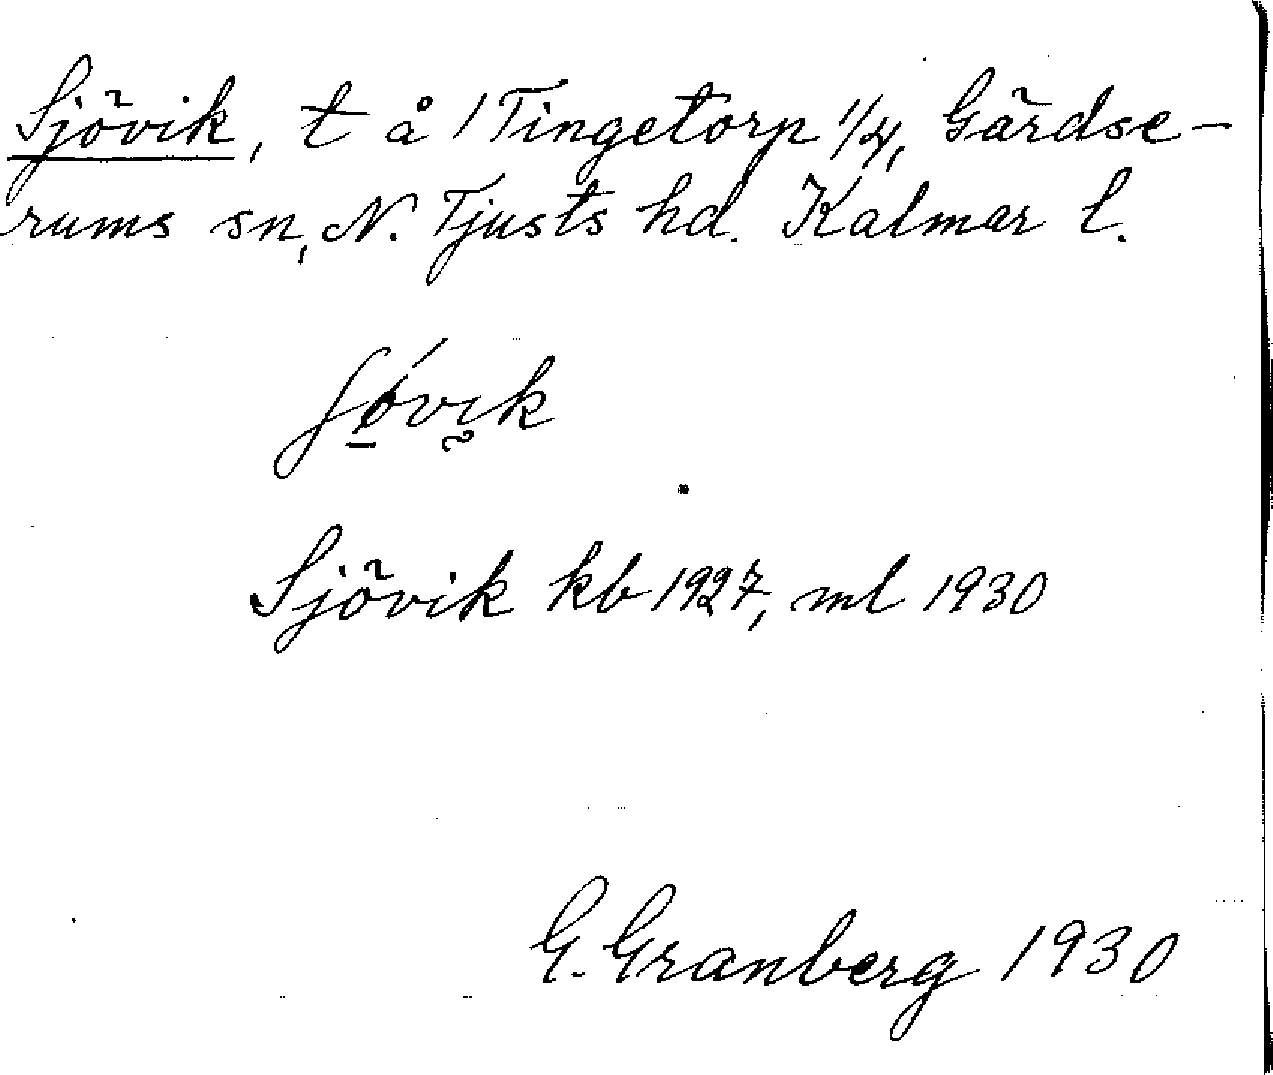 Sjövik, t å 1 Tingetorp 1/4, Gärdse-
rums sn, N. Tjusts hd. Kalmar l.
ʃǿ̱vı̰k
Sjövik kb 1927, ml 1930
G. Granberg 1930